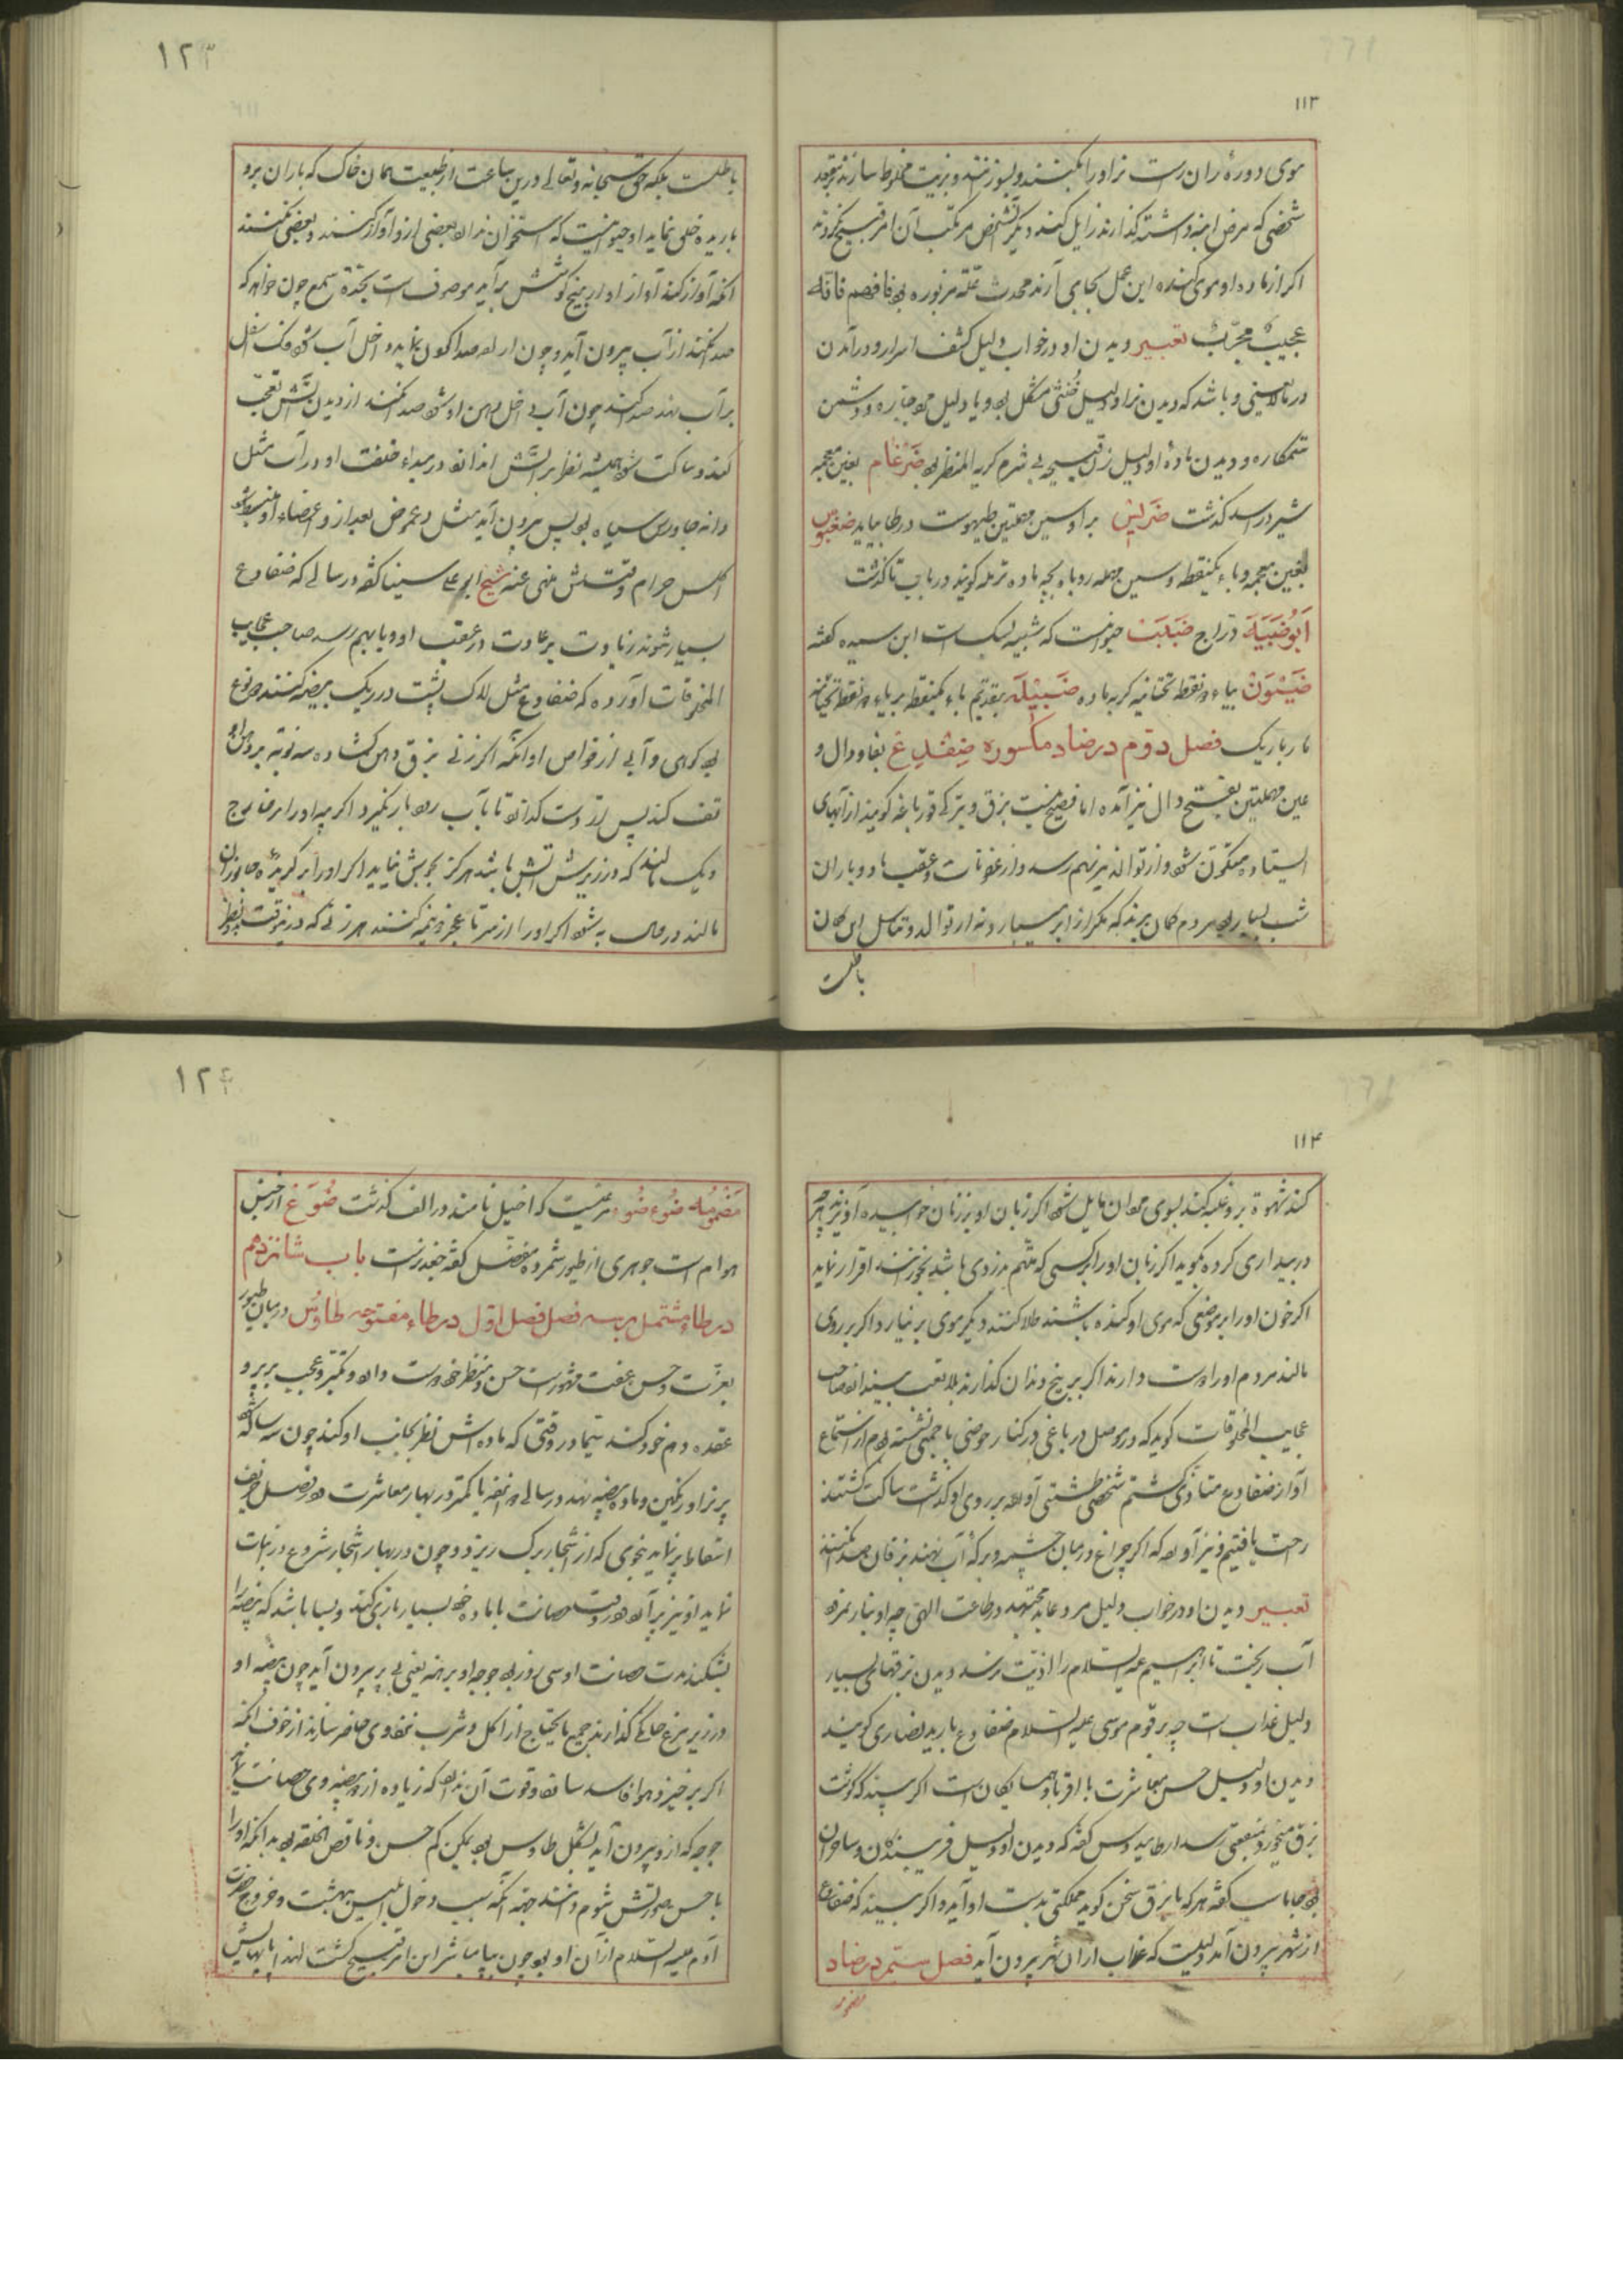 ۱۱۳
موی دوره ران راست نر او را بکنند و بسوزنند و بزیت مخلوط سازند بمقعد
شخصی که مرض ابنه داشته گذارند زایل کند و دیگر آن شخص مرتکب آن امر قبیح نگردد
اگر از ماده او موی کنده این عمل بجای آرند محدث علة مزبوره بود فافهم فانه
عجیب مجرب تعبیر دیدن او در خواب دلیل کشف اسرار و در آمدن
در مالایعنی و باشد که دیدن نر او دلیل خنثی مشکل بود و یا دلیل بود و دشمن
ستمکاره و دیدن ماده او دلیل زن قبیحه بی شرم کریه المنظر بود ضرغام بغین معجمه
شیر در اسد گذشت ضریس براء و سین مهملتین طیهوست در طا بیاید ضغبوس
بغین معجمه و باء یکنقطه و سین مهمله روباه بچه ماده ترمله گویند در باب تا گذشت
ابوضبیة دراج ضبب حیوانیست که شبیه بسگ است ابن سیده گفته
ضیون بیاء دو نقطه تحتانیه گربه ماده ضبیلة بتقدیم باء یکنقطه بر یاء دو نقطه تحتانیه
مار باریک فصل دوم در ضاد مکسوره ضفدع بفا و دال و
عین مهملتین بفتح دال نیز آمده اما فصیح نیست بزق و بترکی قورباغه گویند از آبهای
ایستاده متکون شود و از توالد نیز بهم رسد و از عفونات و عقب باد و باران
شب بسیار بود مردم گمان برند که مگر از ابر میبارد نه از توالد و تناسل این گمان
باطلست
۱۲۳
باطلست بلکه حق سبحانه و تعالی درین ساعت از طبیعت همان خاک که باران برو
باریده خلق نماید او حیوانیست که استخوان ندارد بعضی ازو آواز کنند و بعضی نکنند
آنکه آواز کند آواز او از بیخ گوشش برآید موصوف است بحدة سمع چون خواهد که
صدا کند از آب بیرون آید و چون اراده صدا کردن نماید داخل آب شود فک اسفل
بر آب نهد صدا کند چون آب داخل دهن او شود صدا نکند از دیدن آتش تعجب
کند و ساکت شود همیشه نظر بر آتش اندازد در مبداء خلقت او در آب مثل
دانه جاورس سیاه بود پس بیرون آید مثل دعموص بعد ازو اعضاء او
اکلش حرام و قتلش منهی عنه شیخ ابو علی سینا گفته در سالی که ضفادع
بسیار شوند زیادت بر عادت در عقب او وبا بهم رسد صاحب عجایب
المخلوقات آورده که ضفادع مثل لاک پشت در ریک بیضه کنند دو نوع
بود کوهی و آبی از خواص او آنکه اگر زنی بزق دهن گشاده سه نوبة در دهن او
تف کند پس از دست گذارد تا بآب رود بار نگیرد اگر پیه او را بر خارج
دیک مالند که در زیرش آتش باشد هرگز بجوش نیاید اگر او را بر گزیده جانوران
مالند در حال به شود اگر او را از سر تا بعجز دو نیمه کنند هر زنی که در نوقت نظر
۱۱۴
کند شهوة برو غلبه کند بسوی مردان مایل شود اگر زبان او بر زنان خوابیده آویزند هر چه
در بیداری کرده بگوید اگر زبان او را بر کسی که متهم بدزدی باشد بخورانند اقرار نماید
اگر خون او را بر موضعی که موی او کنده باشند طلا کنند دیگر موی بر نیارد اگر بر روی
مالند مردم او را دوست دارند اگر بر بیخ دندان گذارند بلا تعب بیندازد صاحب
عجایب المخلوقات گوید که در موصل در باغی در کنار حوضی با جمعی نشسته بودم از استماع
آواز ضفادع متاذی گشتم شخصی طشتی آورده بر روی او گذاشت ساکت گشتند
راحت یافتیم و نیز آورده که اگر چراغ در میان چشمه و برکه آب نهند بزقان صدا نکنند
تعبیر دیدن او در خواب دلیل مرد عابد مجتهد در طاعت الهی چه او بنار نمرود
آب ریخت تا ابراهیم علیه السلام را اذیت نرسد و دیدن بزقهای بسیار
دلیل عذاب است چه بر قوم موسی علیه السلام ضفادع بارید نصاری گویند
دیدن او دلیل حسن معاشرت با اقربا و همسایگان است اگر بیند که گوشت
بزق میخورد منفعتی رسد ارطامیدوس گفته که دیدن او دلیل فریبندگان و ساحران
بود جاماسب گفته هر که با بزق سخن گوید مملکتی بدست او آید و اگر بیند که ضفادع
از شهر بیرون آمد دلیلست که عذاب از آن شهر بیرون آید فصل سیم در ضاد
مضمومه
۱۲۴
مضمومه ضوء ضوء مرغیست که اخیل نامند در الف گذشت ضوع از جنس
هوام است جوهری از طیور شمرده مفضل گفته جغد نر است باب شانزدهم
در طاء مشتمل بر سه فصل فصل اول در طاء مفتوحه طاوس در میان طیور
بعزت و حسن عفت مشهور است حسن و منظر خود دوست دارد و تکبر و عجب بر پر و
عقده دم خود کند سیما در وقتی که ماده اش نظر بجانب او کند چون سه ساله شود
پر نر او رنگین و ماده بیضه نهد در سالی دوازده یا کمتر در بهار معاشرت کند در فصل خریف
اسقاط پر نماید بنحوی که از اشجار برگ ریزد و چون در بهار اشجار شروع در نبات
نماید او نیز پر آورد در وقت حضانت با ماده خود بسیار بازی کند و بسا باشد که بیضه را
بشکند مدت حضانت او سی روز بود جوجه او برهنه یعنی بی پر بیرون آید چون بیضه او
در زیر مرغ خانگی گذارند جمیع مایحتاج از اکل و شرب نزد وی حاضر سازند از خوف آنکه
اگر بر خیزد هوا فاسد سازد و قوت آن ندارد که زیاده از دو بیضه وی حضانت نماید
جوجه که ازو بیرون آید بشکل طاوس بود لیکن کم حسن و ناقص الخلقه بود بدانکه او را
با حسن صورتش شوم دانند جهة آنکه سبب دخول ابلیس ببهشت و خروج حضرت
آدم علیه السلام از آن او بود چون مباشر این امر قبیح گشت لهذا پایهایش